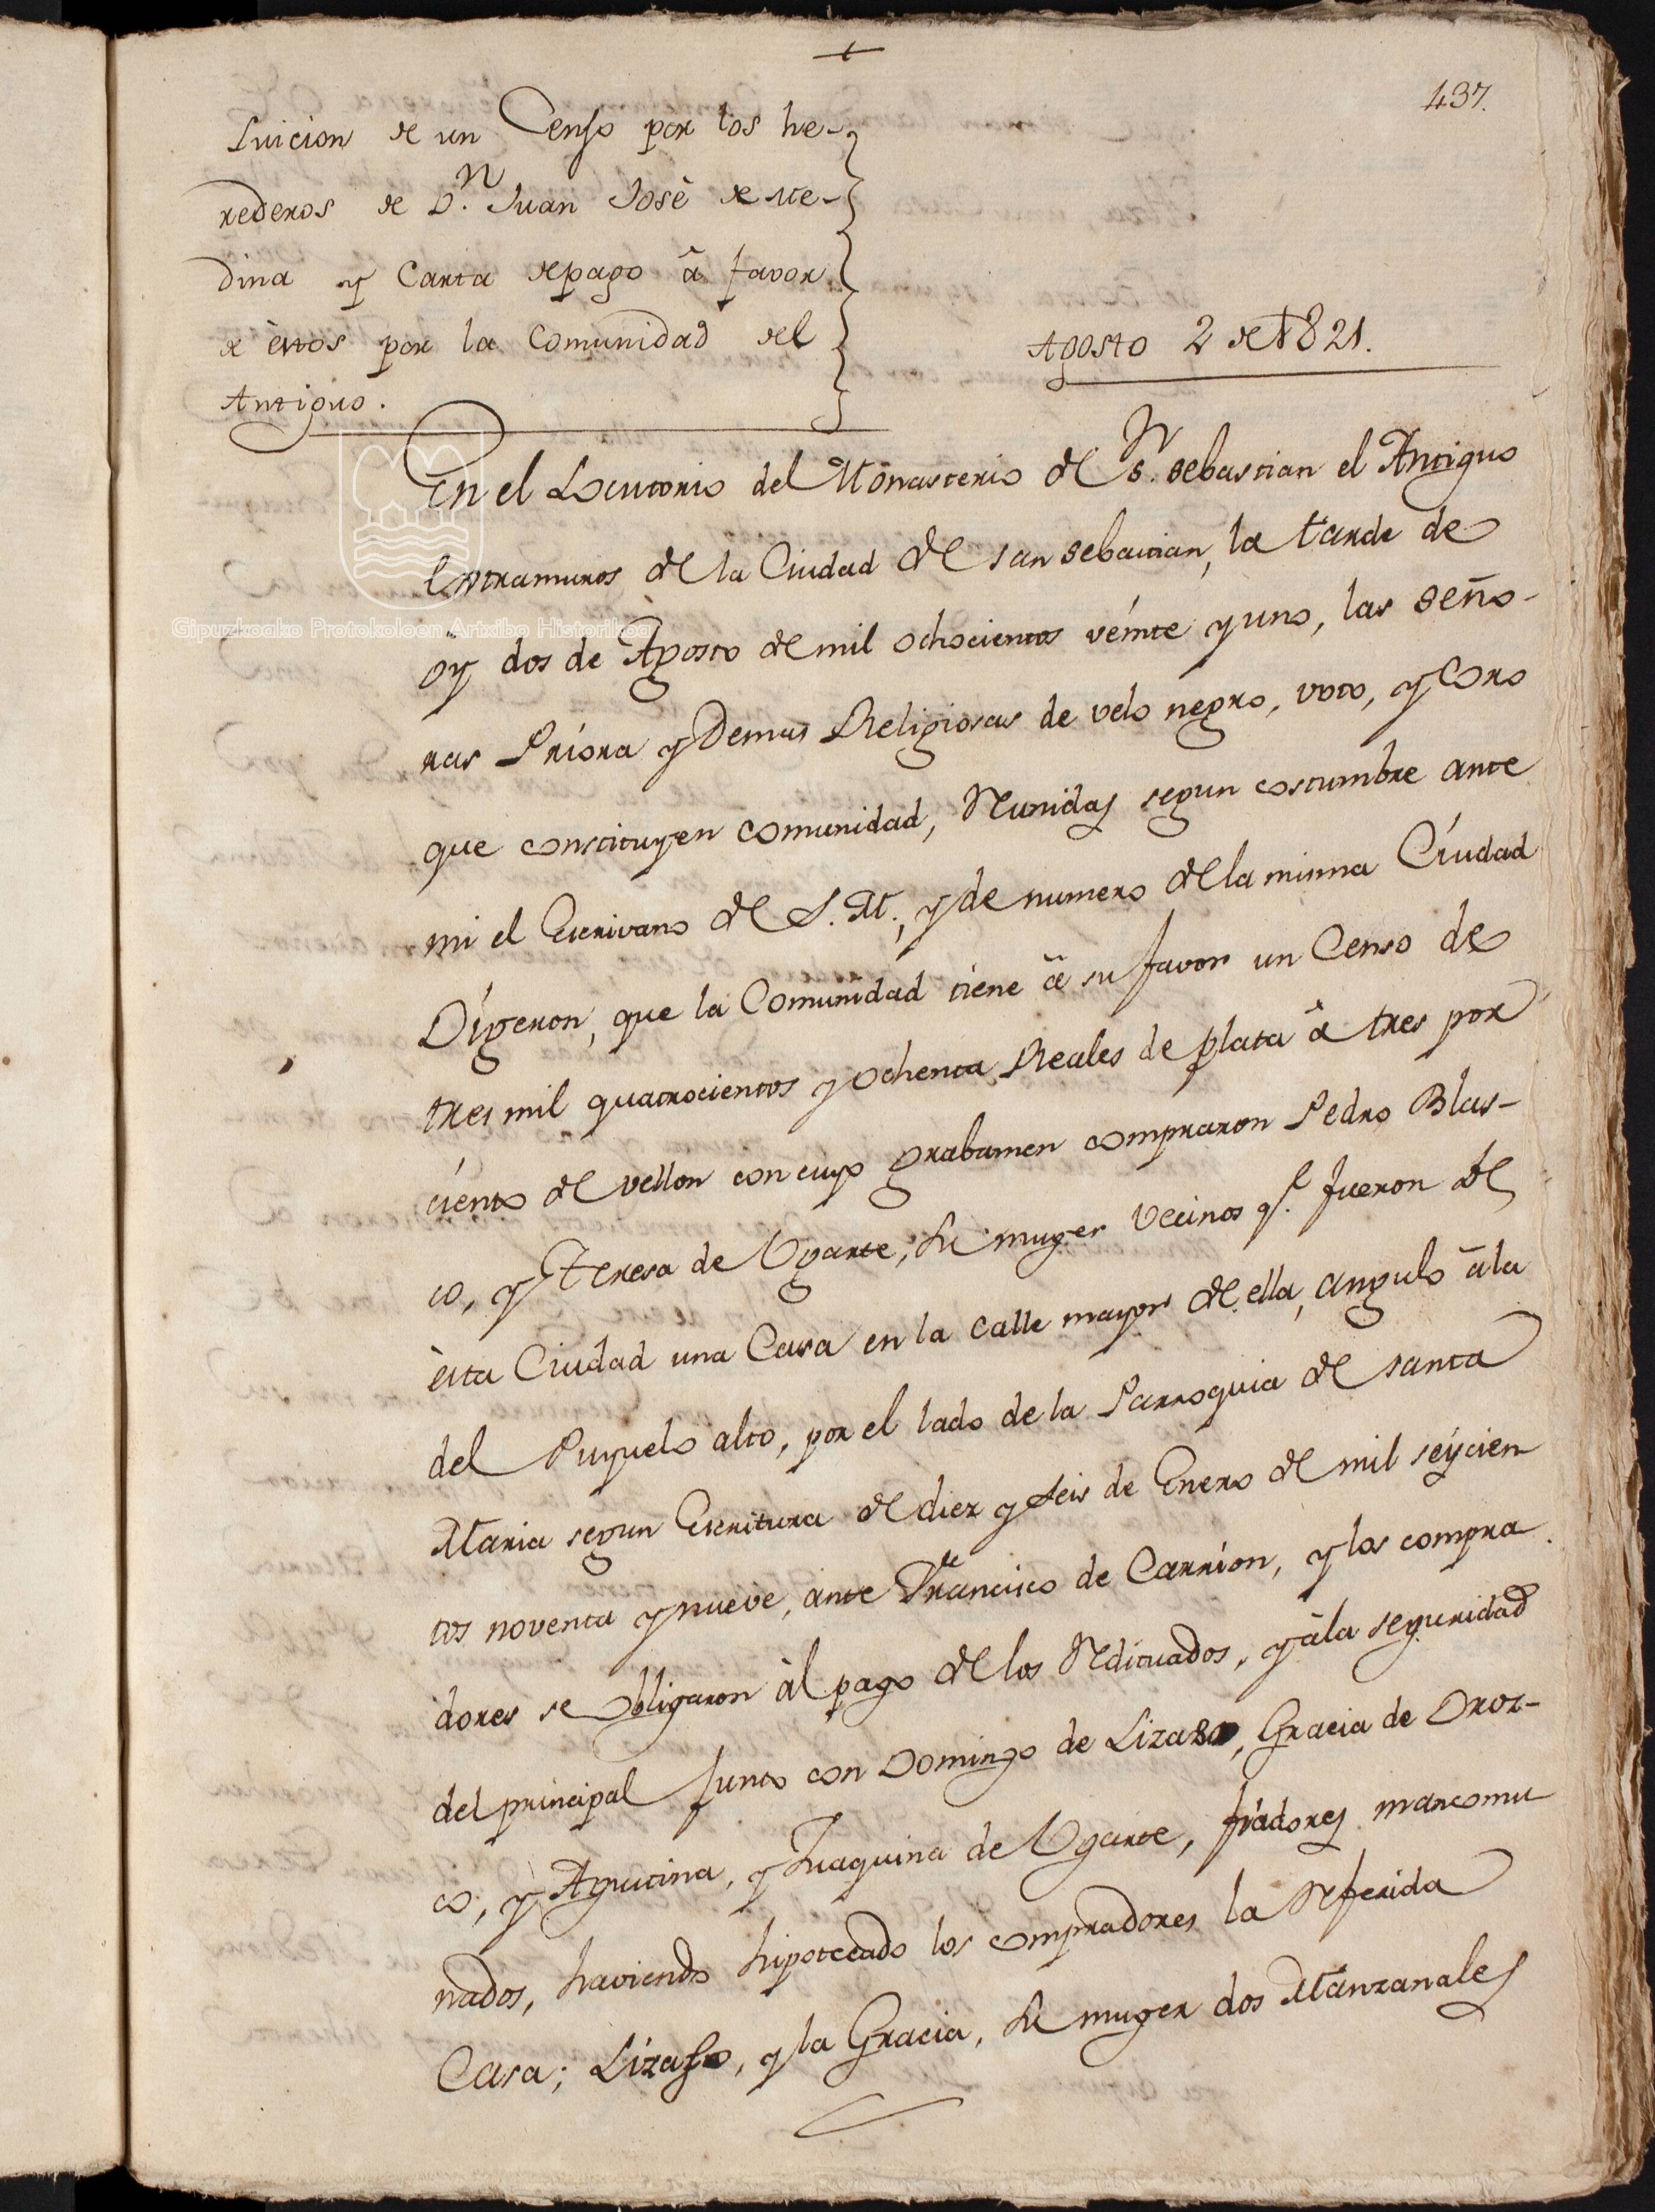 +
437.
Luicion de un Censo por los he-
rederos de D.N Juan José de Me-
dina y Carta de pago â favor
de èstos por la Comunidad del
Antiguo.
Agosto 2 de 1821.
En el Locutorio del Monasterio de S.N Sebastian el Antiguo
Extramuros de la Ciudad de san Sebastian, la tarde de
oy dos de Agosto de mil ochocientos veínte y uno, las Seño-
ras Príora y Demas Religiosas de velo negro, voto, y Coro
que constituyen comunidad, Runidas segun costumbre ante
mi el Escrivano de S. M., y de numero de la misma Cíudad
Díjeron, que la Comunidad tiene â su favor un Censo de
tres mil quatrocientos y ochenta Reales de plata â tres por
cíento de vellon con cuyo grabamen compraron Pedro Blas-
co, y Teresa de Ugarte, su muger Vecinos q.e fueron de
èsta Ciudad una Casa en la Calle mayor de ella, angulo â la
del Puyuelo alto, por el lado de la Parroquia de santa
Maria segun Escritura de diez y Seis de Enero de mil seiscien
tos noventa y nueve, ante Francisco de Carríon, y los compra
dores se obligaron àl pago de los Redituados, y â la seguridad
del principal Junto con Domingo de Lizaso, Gracia de Oroz-
co, y Agustina, y Juaquina de Ugarte, fíadores mancomu
nados, haviendo hipotecado los compradores la Referida
Casa; Lízaso, y la Gracia, su muger dos Manzanales
Gipuzkoako Protokoloen Artxibo Historikoa